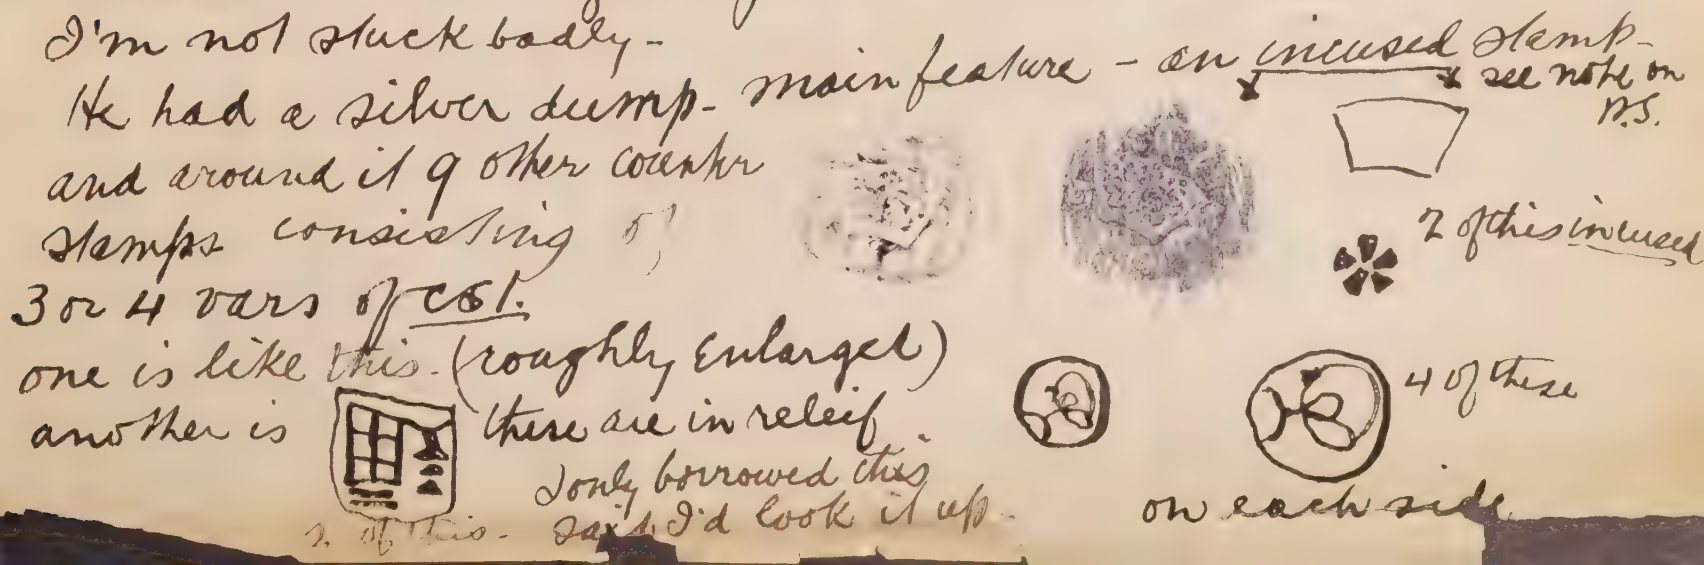 I'm not stuck badly -
He had a silver dump - main feature - an incused stamp -
see note on
B.S.
and around it 9 other counter
stamps consisting of
2 of this incused
3 or 4 vars of cst.
one is like this. (roughly enlarged)
4 of these
another is these are in releif
I only borrowed this
said I'd look it up -
on each side
2 of this -